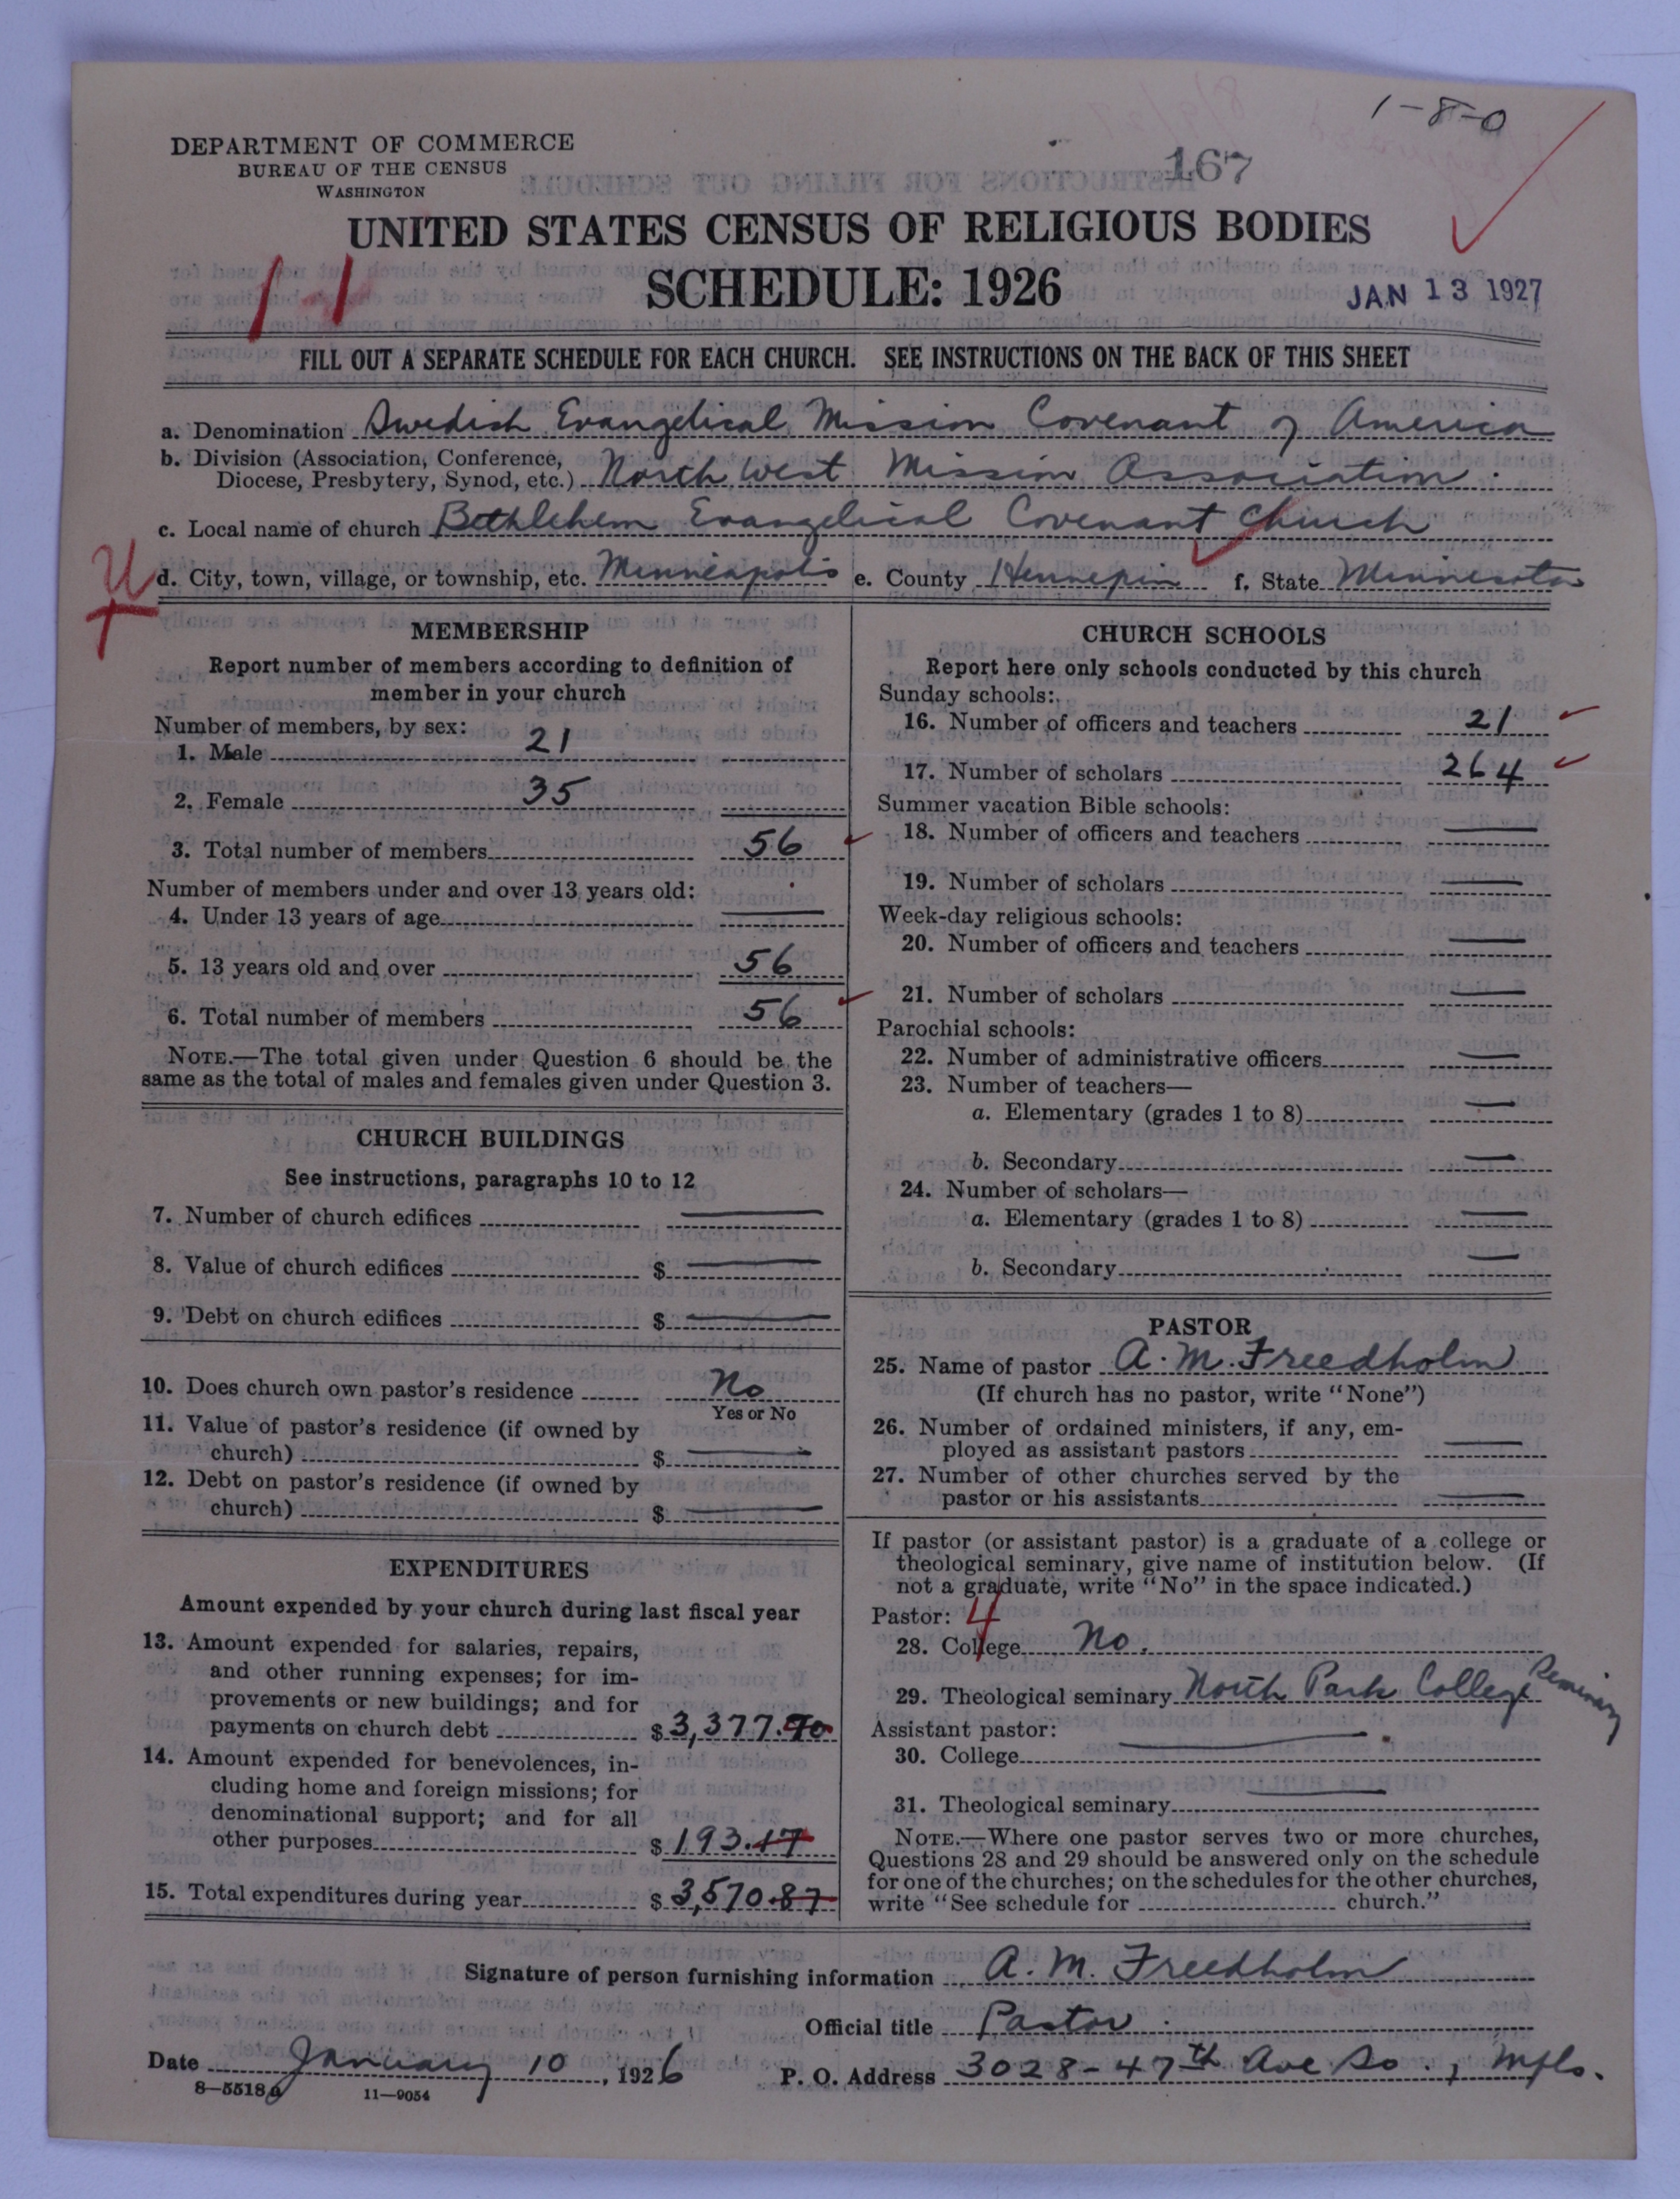 1-8-0
DEPARTMENT OF COMMERCE
BUREAU OF THE CENSUS
WASHINGTON
167
UNITED STATES CENSUS OF RELIGIOUS BODIES
SCHEDULE: 1926
JAN 13 1927
FILL OUT A SEPARATE SCHEDULE FOR EACH CHURCH. SEE INSTRUCTIONS ON THE BACK OF THIS SHEET
a. Denomination Swedish Evangelical Mission Covenant of America
b. Division (Association, Conference,
Diocese, Presbytery, Synod, etc.) North West Mission Association.
c. Local name of church Bethlehem Evangelical Covenant Church
d. City, town, village, or township, etc. Minneapolis e. County Hennepin f. State Minnesota
MEMBERSHIP
Report number of members according to definition of
member in your church
Number of members, by sex:
1. Male 21
2. Female 35
3. Total number of members 56
Number of members under and over 13 years old:
4. Under 13 years of age —
5. 13 years old and over 56
6. Total number of members 56
NOTE.—The total given under Question 6 should be the
same as the total of males and females given under Question 3.
CHURCH BUILDINGS
See instructions, paragraphs 10 to 12
7. Number of church edifices —
8. Value of church edifices $ —
9. Debt on church edifices $ —
10. Does church own pastor's residence No
Yes or No
11. Value of pastor's residence (if owned by
church) $ —
12. Debt on pastor's residence (if owned by
church) $ —
EXPENDITURES
Amount expended by your church during last fiscal year
13. Amount expended for salaries, repairs,
and other running expenses; for im-
provements or new buildings; and for
payments on church debt $ 3,377.70
14. Amount expended for benevolences, in-
cluding home and foreign missions; for
denominational support; and for all
other purposes $ 193.17
15. Total expenditures during year $ 3,570.87
CHURCH SCHOOLS
Report here only schools conducted by this church
Sunday schools:
16. Number of officers and teachers 21
17. Number of scholars 264
Summer vacation Bible schools:
18. Number of officers and teachers —
19. Number of scholars —
Week-day religious schools:
20. Number of officers and teachers —
21. Number of scholars —
Parochial schools:
22. Number of administrative officers —
23. Number of teachers—
a. Elementary (grades 1 to 8) —
b. Secondary —
24. Number of scholars—
a. Elementary (grades 1 to 8) —
b. Secondary —
PASTOR
25. Name of pastor A. M. Freedholm
(If church has no pastor, write "None")
26. Number of ordained ministers, if any, em-
ployed as assistant pastors —
27. Number of other churches served by the
pastor or his assistants —
If pastor (or assistant pastor) is a graduate of a college or
theological seminary, give name of institution below. (If
not a graduate, write "No" in the space indicated.)
Pastor: 4
28. College No.
29. Theological seminary North Park College Seminary
Assistant pastor: —
30. College
31. Theological seminary —
NOTE.—Where one pastor serves two or more churches,
Questions 28 and 29 should be answered only on the schedule
for one of the churches; on the schedules for the other churches,
write "See schedule for church."
Signature of person furnishing information A. M. Freedholm
Official title Pastor.
Date January 10, 1926 P. O. Address 3028-47th Ave So., Mpls.
8-5518a 11-9054